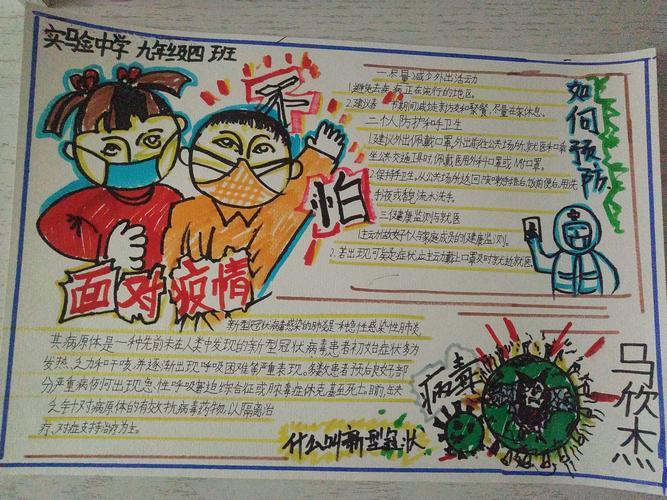 实验中学 九年级四班
不
怕
面对疫情
如何预防
一.尽量减少外出活动
1.避免去疾病正在流行的地区.
2.建议春节期间减少走亲访友和聚餐,尽量在家休息.
二个人防护和手卫生
1.建议外出佩戴口罩,外出前往公共场所,就医和乘
坐公共交通工具时,佩戴医用外科口罩或N95口罩.
2.保持手卫生,从公共场所返回,咳嗽手捂后,饭前便后,用洗
手液或香皂流水洗手.
三.健康监测与就医
1.主动做好个人与家庭成员的健康监测.
2.若出现可疑症状,应主动戴上口罩及时就近就医
新型冠状病毒感染的肺炎是一种急性感染性肺炎
其病原体是一种先前未在人类中发现的新型冠状病毒患者初始症状多为
发热、乏力和干咳,并逐渐出现呼吸困难等严重表现。多数患者预后良好,部
分严重病例可出现急性呼吸窘迫综合征或脓毒症休克,甚至死亡.目前,
乏针对病原体的有效抗病毒药物,以隔离治
疗、对症支持治疗为主。
什么叫新型冠状
病毒
马欣杰